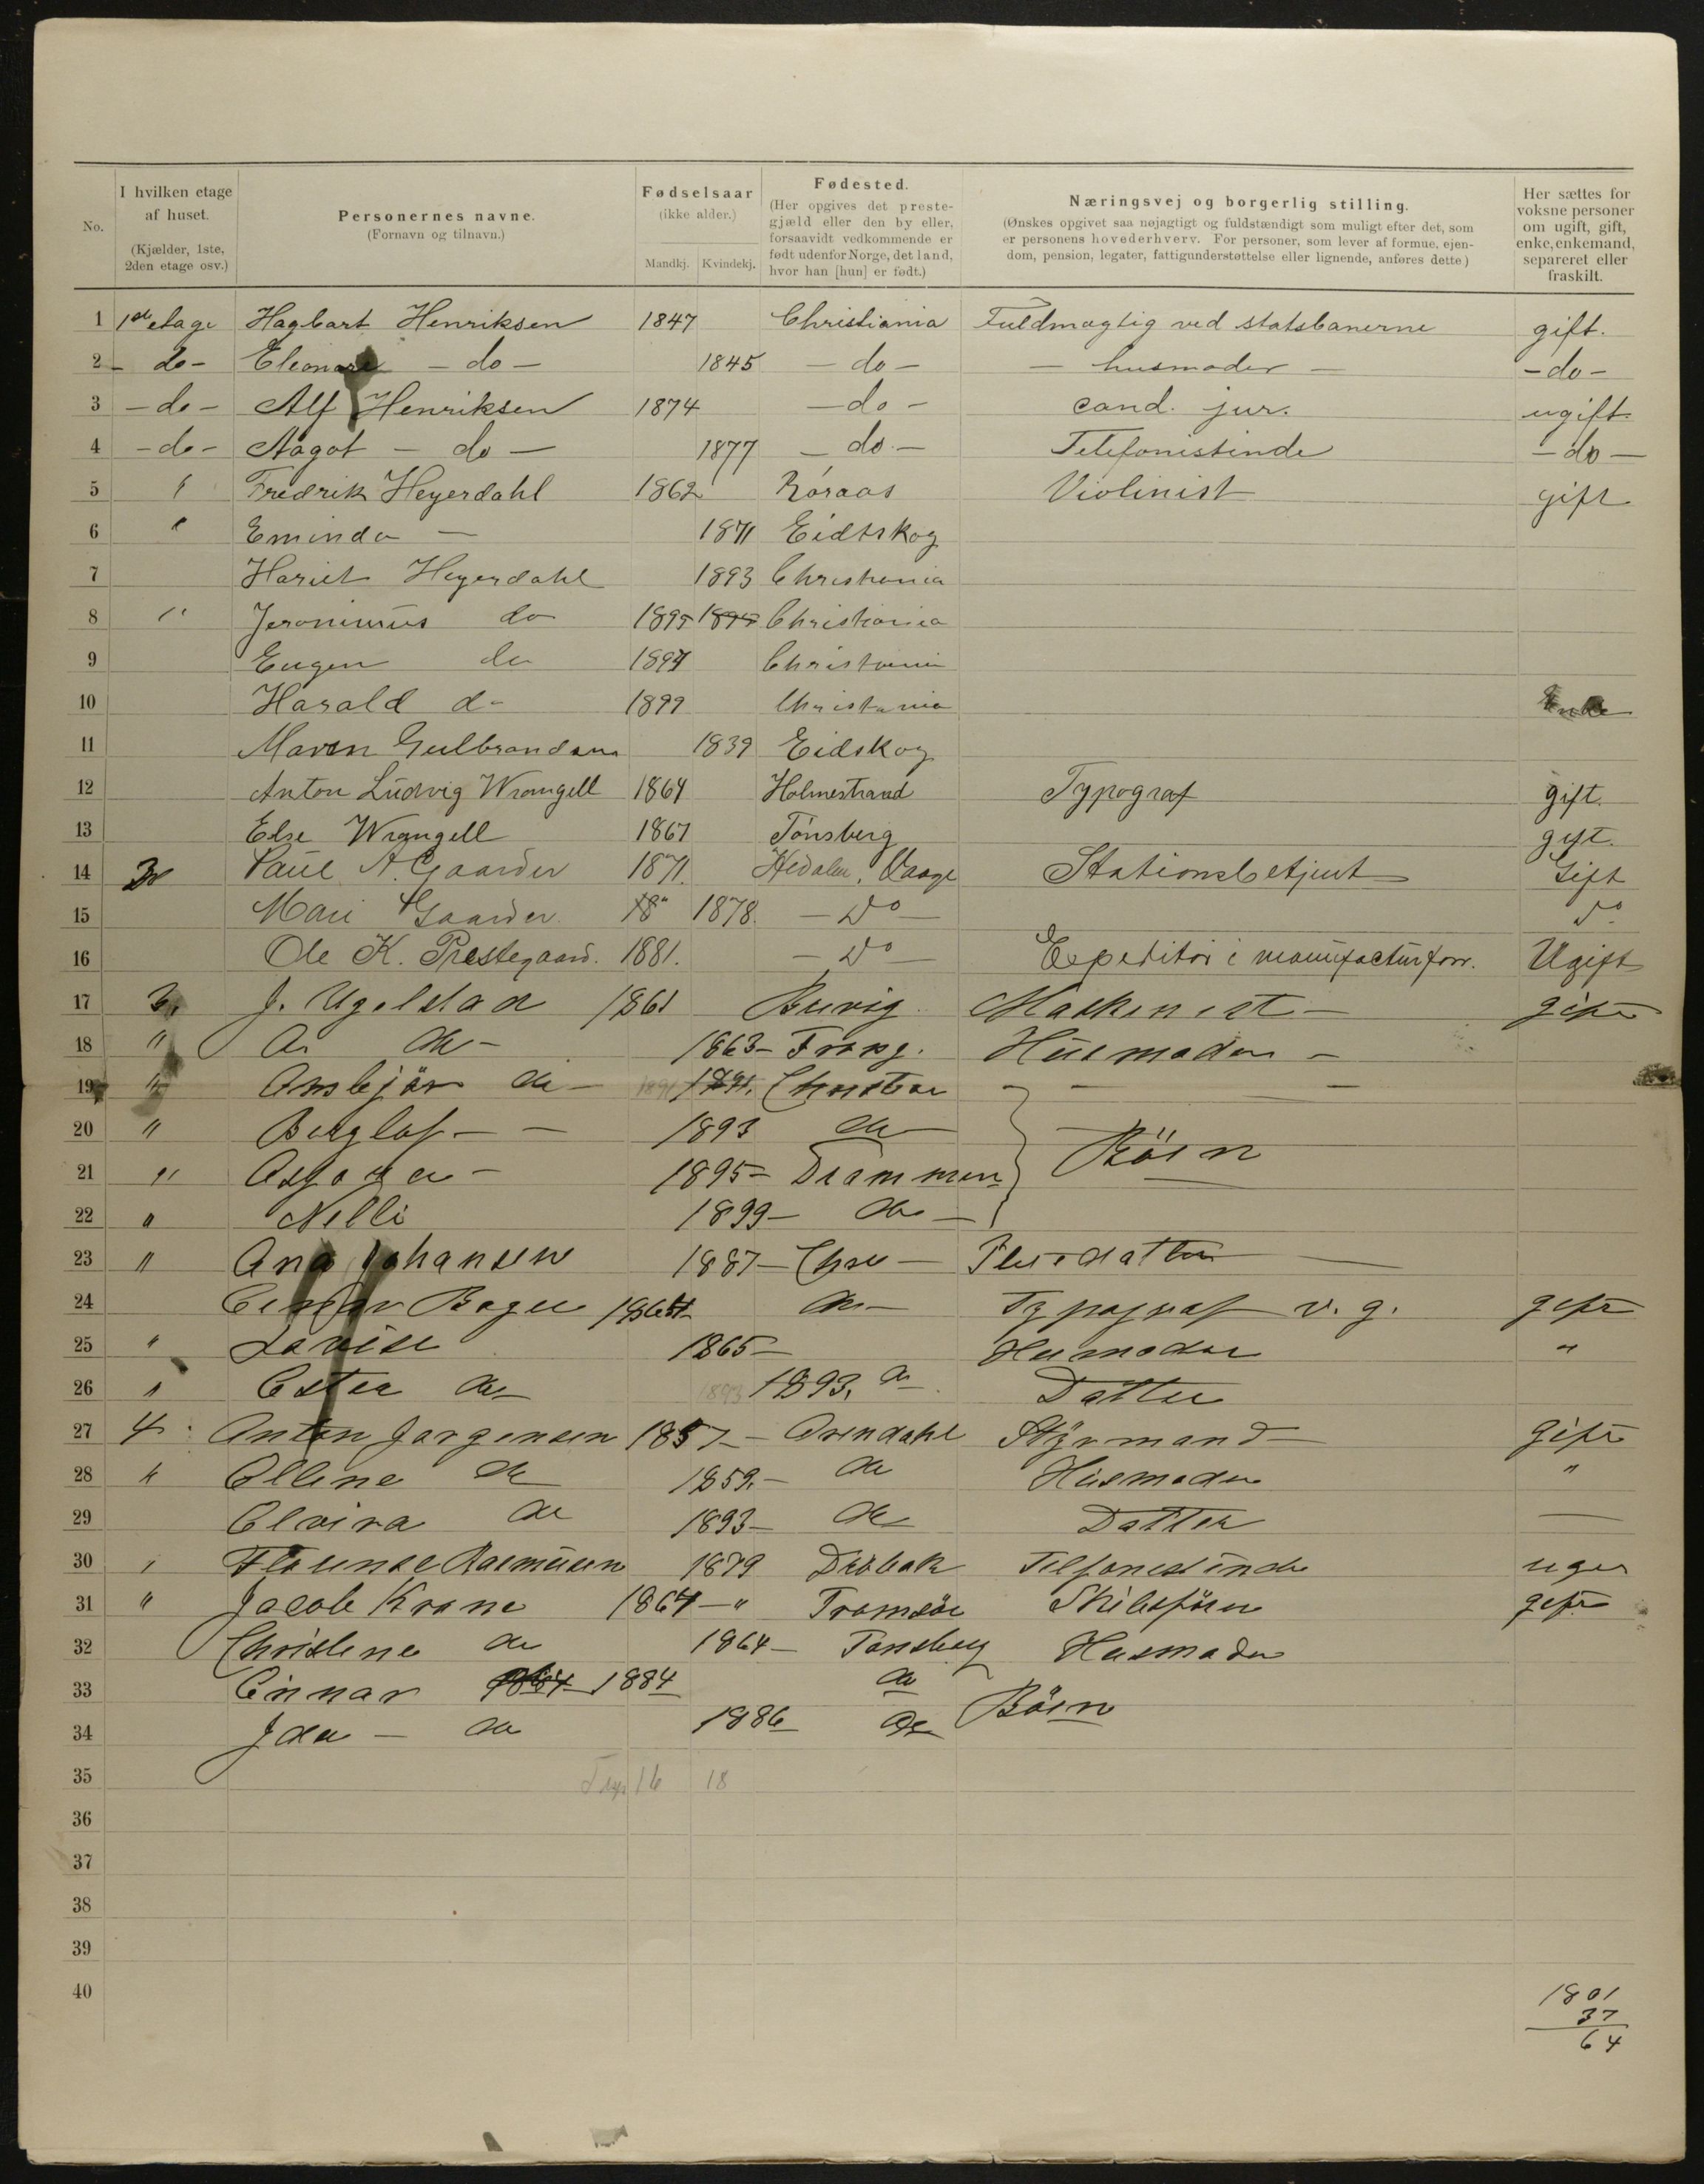 No. I hvilken etage af huset. (Kjælder, 1ste, 2den etage osv.) Personernes navne. (Fornavn og tilnavn.) Fødselsaar (ikke alder.) Mandkj. Kvindekj. Fødested. (Her opgives det prestegjæld eller den by eller, forsaavidt vedkommende er født udenfor Norge, det land, hvor han [hun] er født.) Næringsvej og borgerlig stilling. (Ønskes opgivet saa nøjagtigt og fuldstændigt som muligt efter det, som er personens hovederhverv. For personer, som lever af formue, ejendom, pension, legater, fattigunderstøttelse eller lignende, anføres dette) Her sættes for voksne personer om ugift, gift, enke, enkemand, separeret eller fraskilt.
1 1ste etage Hagbart Henriksen 1847 Christiania Fuldmægtig ved statsbanerne gift.
2 - do - Eleonore - do - 1845 - do - - husmoder - - do -
3 - do - Alf Henriksen 1874 - do - cand. jur. ugift
4 - do - Aagot - do - 1877 - do - Telefonistinde - do -
5 " Fredrik Heyerdahl 1862 Röraas Violinist gift
6 " Eminda - 1871 Eidtskog
7 Hariet Heyerdahl 1893 Christiania
8 " Jeronimus do 1895 Christiania
9 Eugen do 1897 Christiania
10 Harald do 1899 Christiania Enke
11 Maren Gulbrandsen 1839 Eidskog
12 Anton Ludvig Wrangell 1864 Holmestrand Typograf gift.
13 Else Wrangell 1867 Tönsberg gift.
14 3 Paul A. Gaarder 1871. Hedalen, Vaage Stationsbetjent Gift
15 Mari Gaarder 18" 1878. - Do - Do
16 Ole K. Prestegaard. 1881. - Do - Expeditör i manufacturforr. Ugift
17 3. J. Ugelstad 1861 Buvig Maskinist - gift
18 " A. do - 1863 - Trong. Husmoder -
19 " Ansbjör do - 1891 1891. Christia - - -
20 " Bergljot - - 1893 do - Börn
21 " 1895 - Drammen
22 " Nelli 1899 - do -
23 " Ana Johansen 1887 - Chra - Pleiedatter
24 Einar Bogen 1864 do - Typograf v. g. gift
25 " Lovise 1865 - Husmoder "
26 " Ester do 1893 1893. do Datter
27 4 Anton Jorgensen 1857 - Arendahl Styrmand gift
28 " Elline do 1859. - do Husmoder "
29 Elvira do 1893 - do Datter -
30 " Florense Rasmusen 1879 Dröbak Telfonestinde ugif
31 " Jacob Krane 1867 - " Tromsöe Skibsförer gift
32 Christene do 1864 - Tonsberg Husmoder
33 Einnar 1884 do Börn
34 Ida - do 1886 do
35 16 18
36
37
38
39
40
1801
37
64